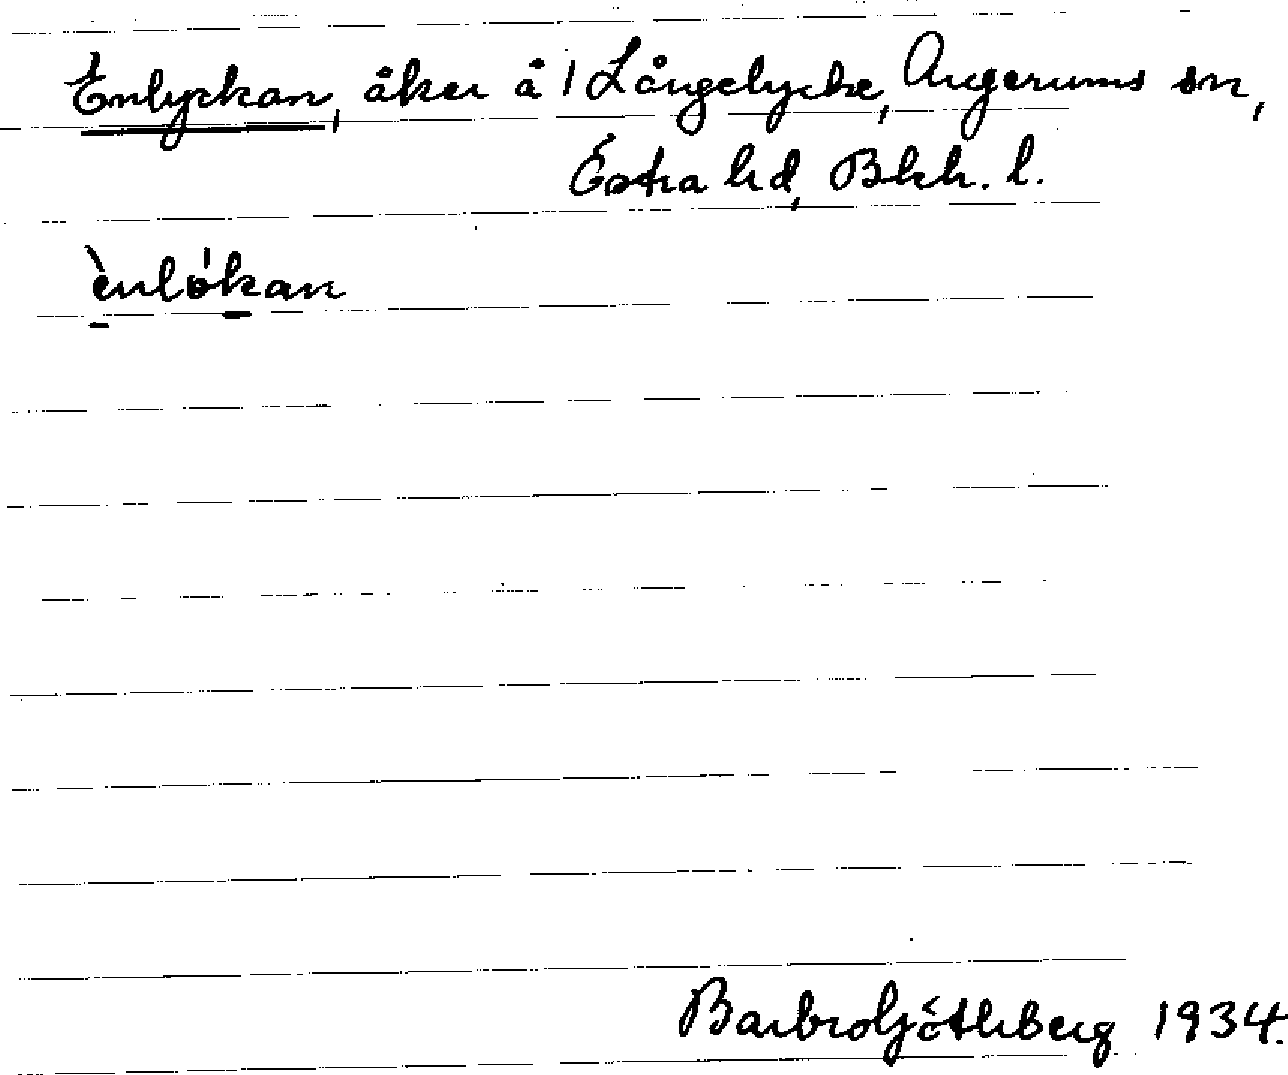 Enlyckan, åker å 1 Långelycke, Augerums sn,
Östra hd, Blek. l.
ènlỏkan
Barbro Göthberg 1934.